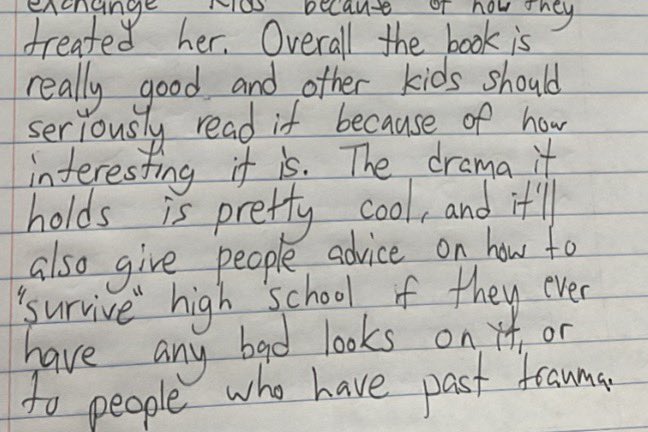 exchange kids because of how they
treated her. Overall the book is
really good and other kids should
seriously read it because of how
interesting it is. The drama it
holds is pretty cool, and it'll
also give people advice on how to
"survive" high school if they ever
have any bad looks on it, or
to people who have past trauma.